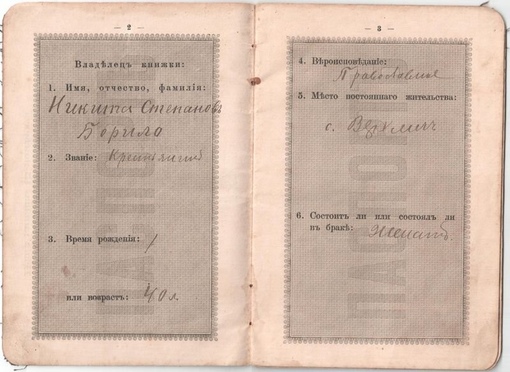 — 2 —
Владѣлецъ книжки:
1. Имя, отчество, фамилія:
Никита Степановъ
Борило
2. Званіе: Крестьянинъ
3. Время рожденія:
или возрастъ: 40 л.
ПАСПОРТ
— 3 —
4. Вѣроисповѣданіе:
Православное
5. Мѣсто постояннаго жительства:
с.
6. Состоитъ ли или состоялъ ли
въ бракѣ: Женатъ.
ПАСПОРТ